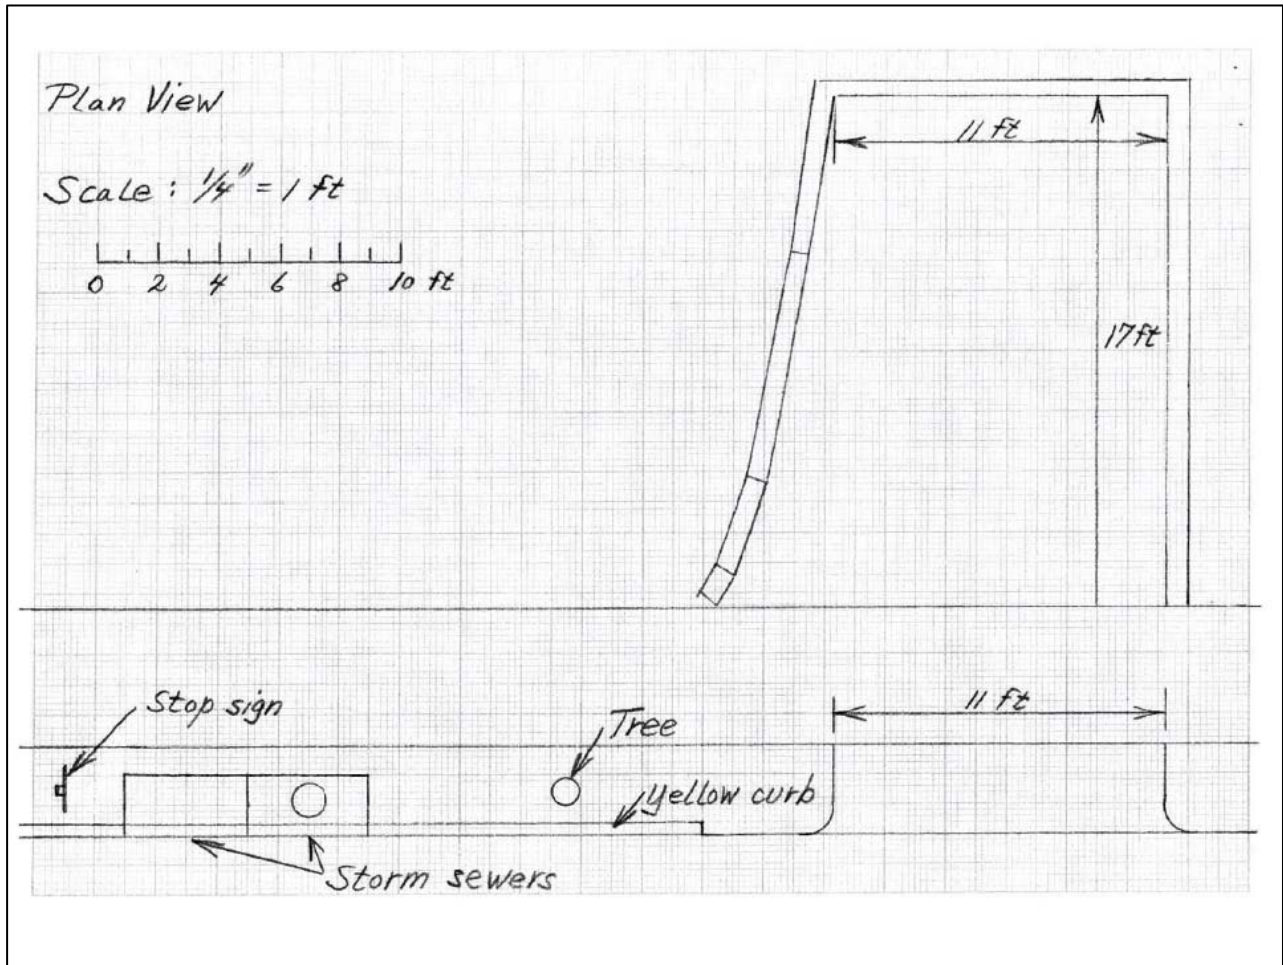 Plan View
Scale: 1/4" = 1 ft
0 2 4 6 8 10 ft
11 ft
17 ft
Stop sign
Tree
11 ft
yellow curb
Storm sewers